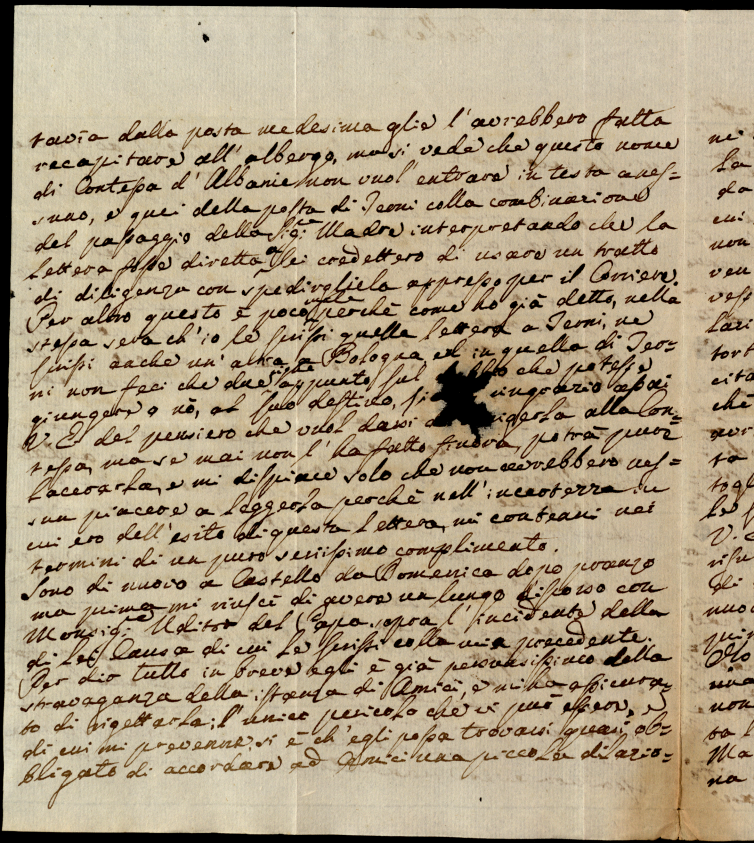 tavia dalla posta medesima glie l'avrebbero fatta
recapitare all'albergo, ma si vede che questo nome
di Contessa d'Albanie non vuol entrare in testa a nes=
suno, e quei della posta di Terni colla combinazione
del passaggio della Sig.ra Madre interpretando che la
lettera fosse diretta a lei credettero di usare un tratto
di diligenza con spedirgliela appresso per il Corriere.
Per altro questo è poco male perchè come ho già detto, nella
stessa sera ch'io le scrissi quella lettera a Terni, ne
scrissi anche un'altra a Bologna, ed in quella di Ter=
ni non feci che due righe appunto sul che potesse
giungere o nò, al suo destino, ringrazio assai
V. E. del pensiero che vuol darsi alla Con=
tessa, ma se mai non l'ha fatto finora, potrà pure
lacerarla, e mi dispiace solo che non avrebbero nes=
sun piacere a leggerla perchè nell'incertezza in
cui ero dell'esito di questa lettera, mi contenni nei
termini di un puro serissimo complimento.
Sono di nuovo a Castello da Domenica dopo pranzo
ma prima mi riuscì di avere un lungo discorso con
Monsig.r Uditor del Papa sopra l'incidente della
di Lei Causa di cui le scrissi colla mia precedente.
Per dir tutto in breve egli è già persuasissimo della
stravaganza della istanza di Amici, e mi ha assicura=
to di rigettarla; l'unico pericolo che vi può essere, e
di cui mi prevenne, si è ch'egli possa trovarsi quasi ob=
bligato di accordare ad Amici una piccola dilazio=